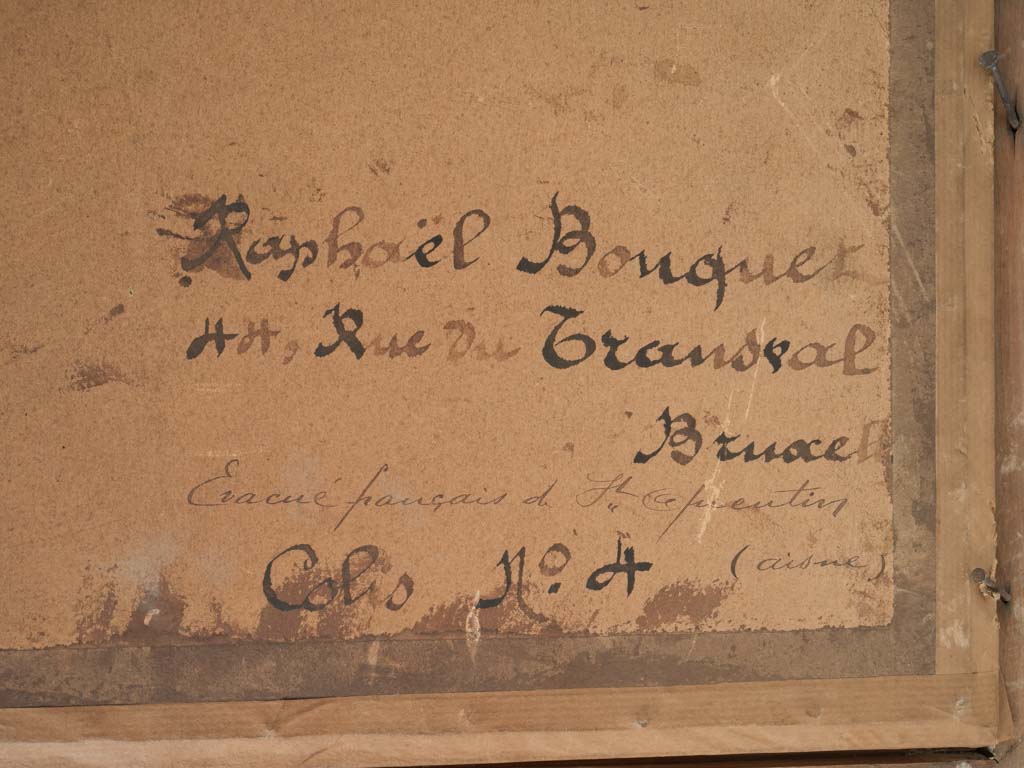 Raphaël Bouquet
44, Rue du Transval
Bruxel
Evacué français d St Quentin
Colis No. 4 (aisne)